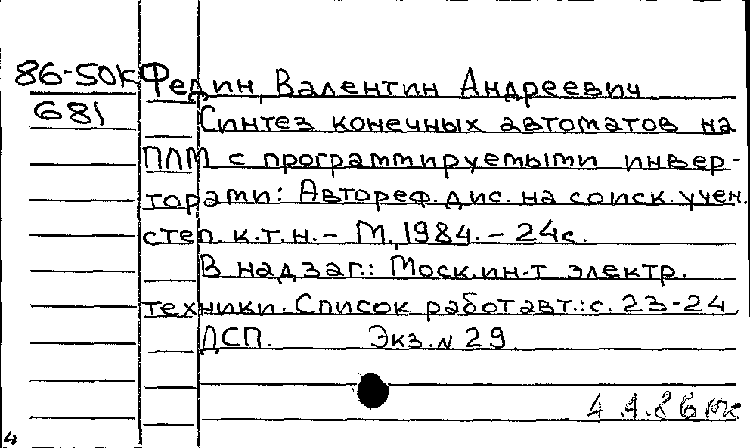 86-50к Федин, Валентин Андреевич
681 Синтез конечных автоматов на
ПЛМ с программируемыми инвер-
торами: Автореф. дис. на соиск. учен.
степ. к.т.н. - М., 1984. - 24с.
В надзаг.: Моск. ин-т электр.
техники. Список работ авт.: с. 23-24
ДСП. Экз. № 29
4